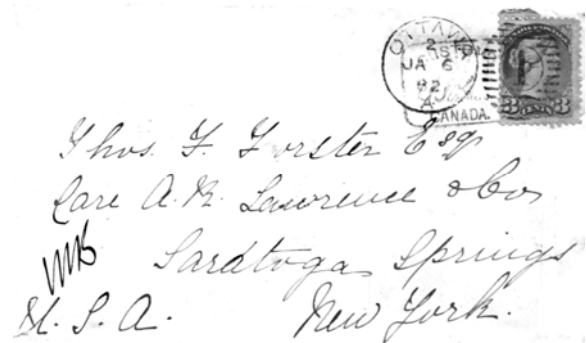 OTTAWA
2
JA 6
92
A
CANADA.
3 CENTS 3
Thos. F. Forster Esq
Care A. R. Lawrence & Co
Saratoga Springs
U. S. A. New York.